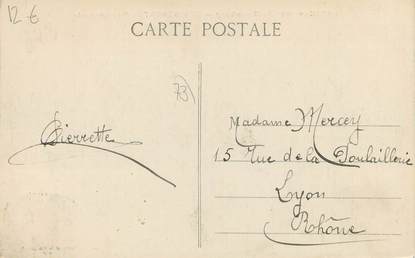 12 €
CARTE POSTALE
73
Pierrette
Madame Mercey
15 Rue de la Poulaillerie
Lyon
Rhône